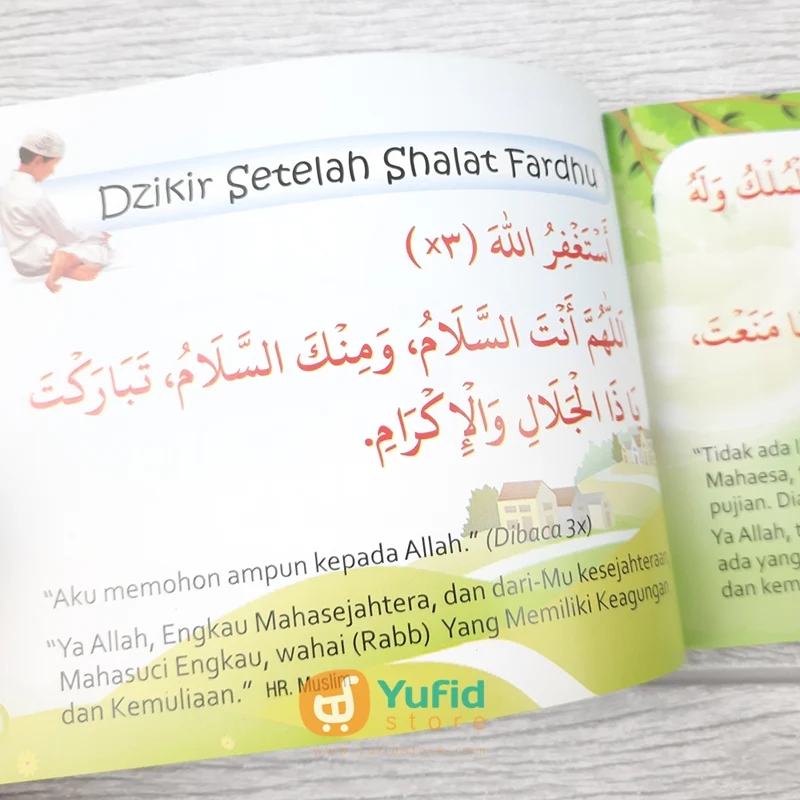 Dzikir Setelah Shalat Fardhu
أَسْتَغْفِرُ اللَّهَ (x٣)
اَللَّهُمَّ أَنْتَ السَّلَامُ، وَمِنْكَ السَّلَامُ، تَبَارَكْتَ
يَا ذَا الْجَلَالِ وَالْإِكْرَامِ.
“Aku memohon ampun kepada Allah.” (Dibaca 3x)
“Ya Allah, Engkau Mahasejahtera, dan dari-Mu kesejahteraan,
Mahasuci Engkau, wahai (Rabb) Yang Memiliki Keagungan
dan Kemuliaan.” HR. Muslim
الْمُلْكُ وَلَهُ
مَنَعْتَ،
“Tidak ada
Mahaesa,
pujian.
Ya Allah,
ada yang
dan
Yufid
store